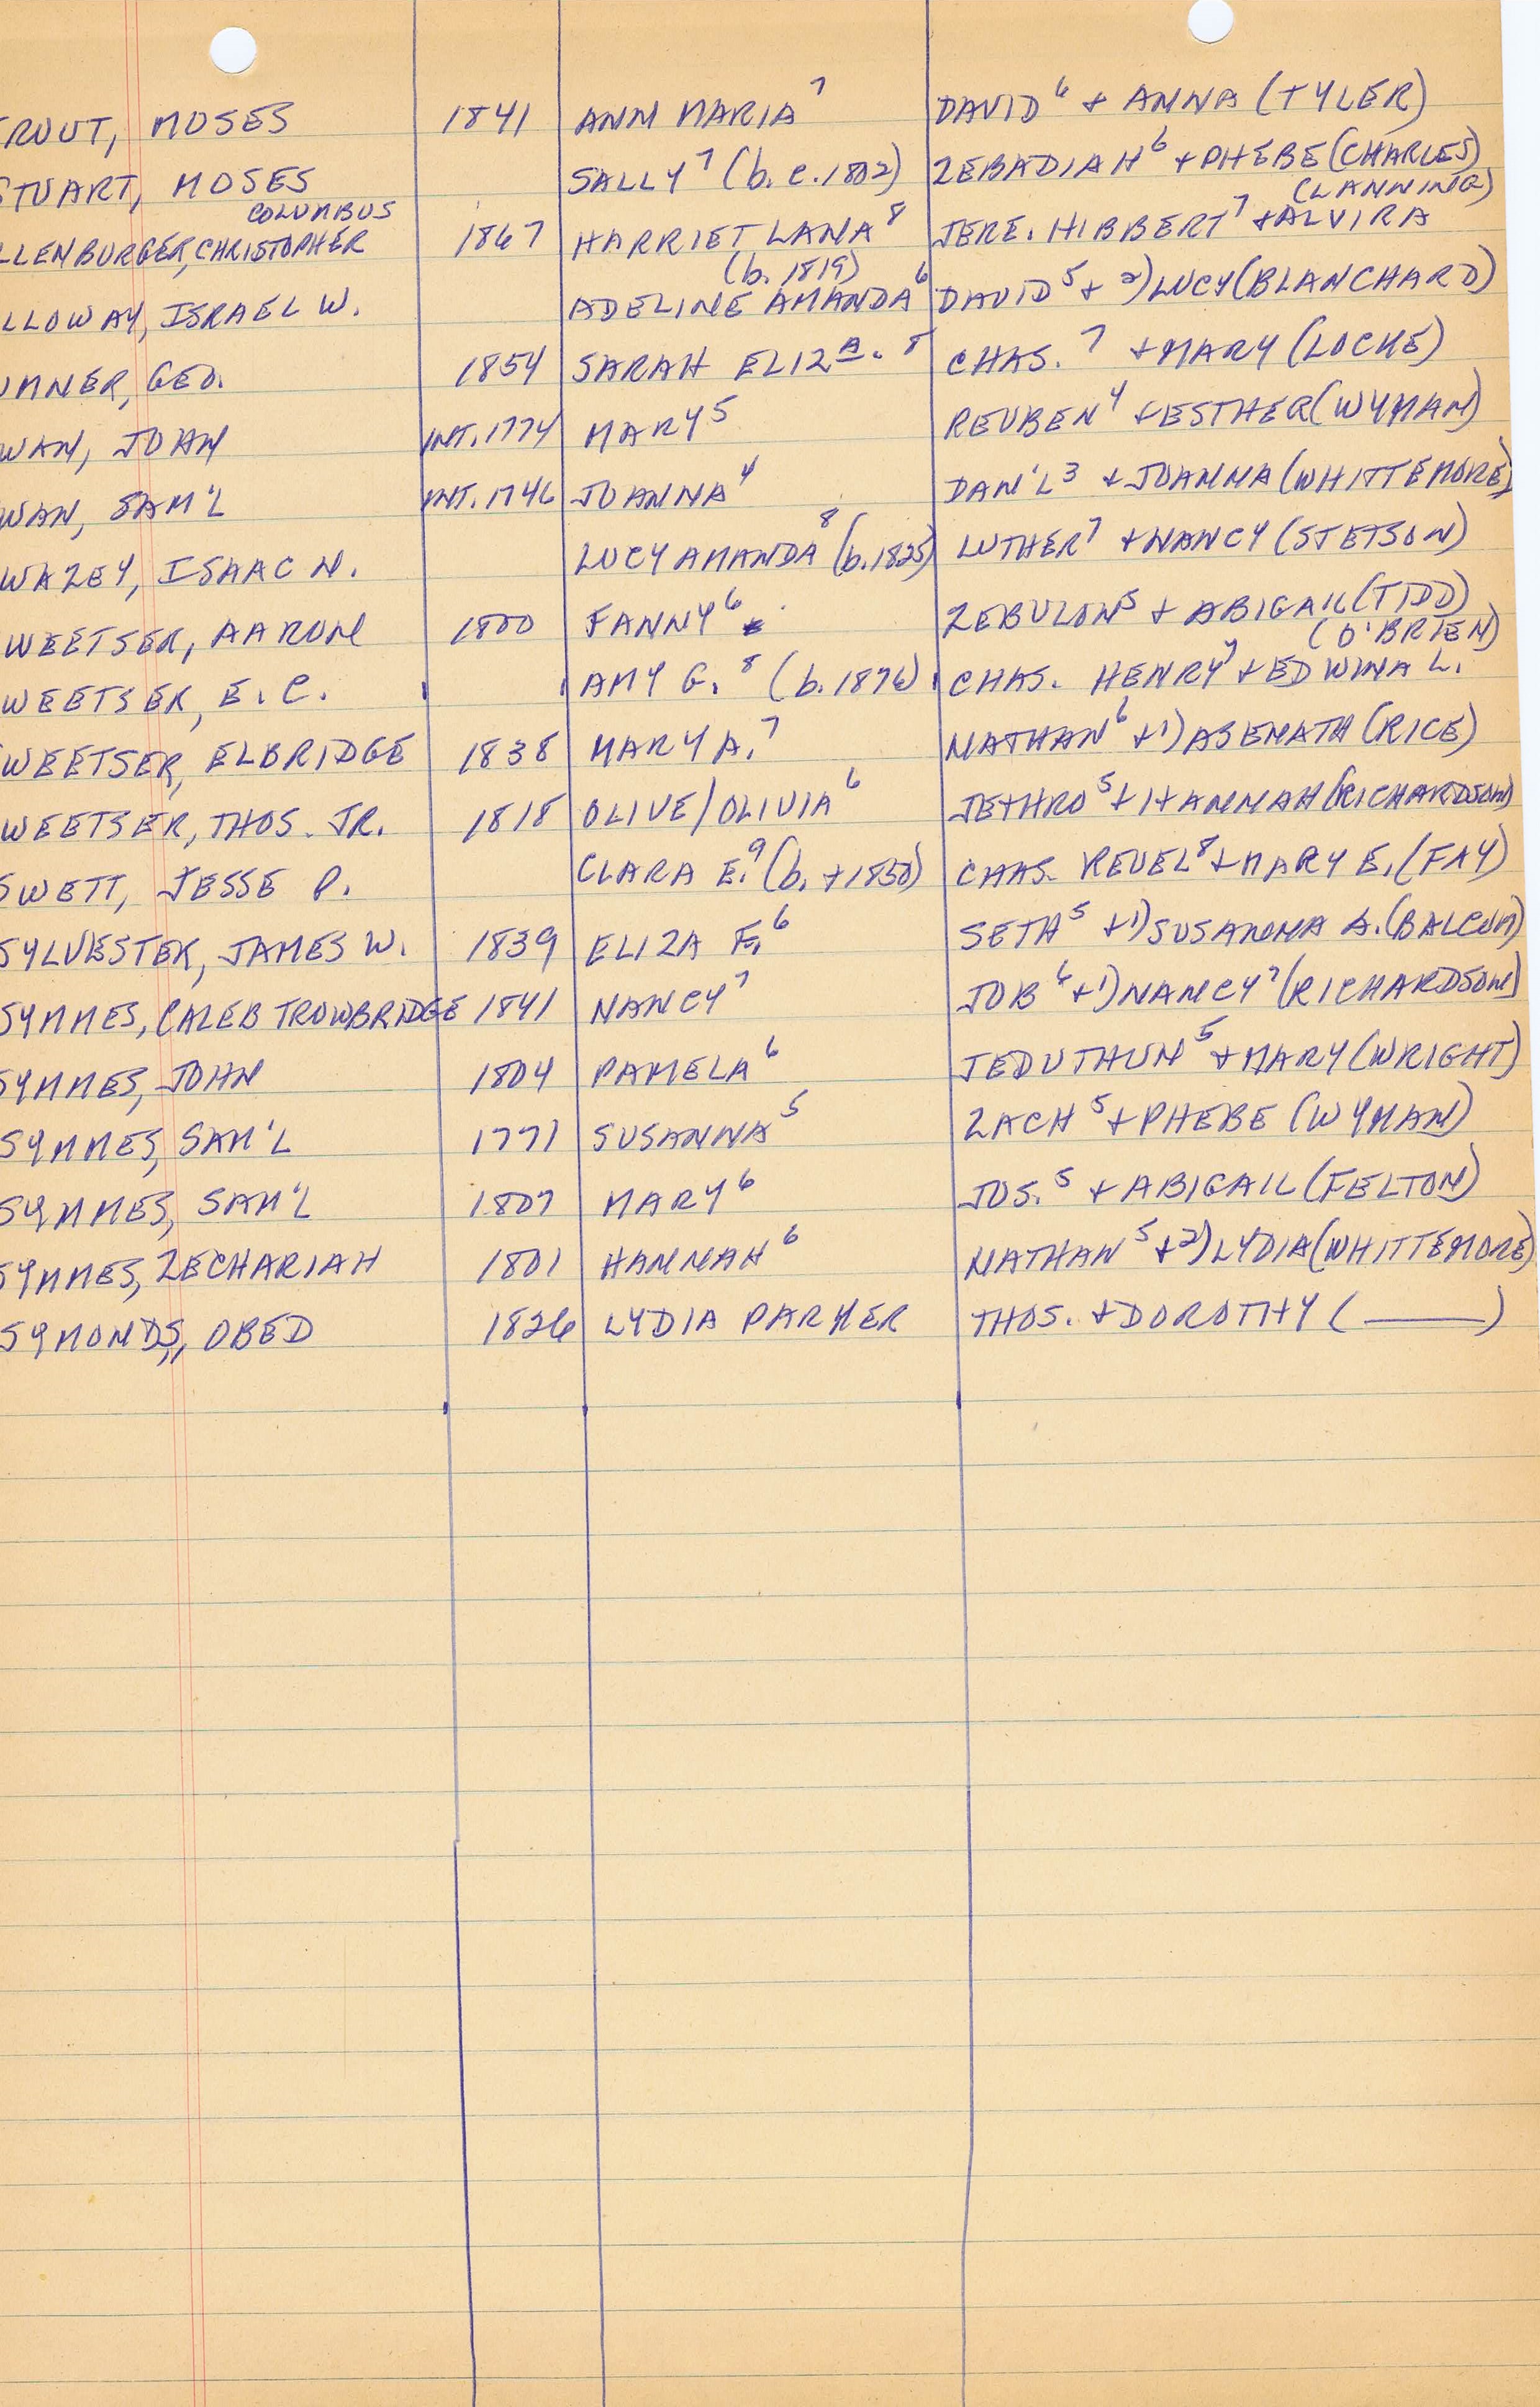 ROUT, MOSES 1841 ANN MARIA⁷ DAVID⁶ + ANNA (TYLER)
STUART, MOSES SALLY⁷ (b. c. 1802) ZEBADIAH⁶ + PHEBE (CHARLES)
COLUMBUS (LANNING)
LLENBURGER, CHRISTOPHER 1867 HARRIET LANA⁸ JERE. HIBBERT⁷ + ALVIRA
(b. 1819)
LLOWAY, ISRAEL W. ADELINE AMANDA⁶ DAVID⁵ + 2) LUCY (BLANCHARD)
MNER, GEO. 1854 SARAH ELIZA. ⁸ CHAS. ⁷ + MARY (LOCKE)
WAN, JOHN INT. 1774 MARY⁵ REUBEN⁴ + ESTHER (WYMAN)
WAN, SAM'L INT. 1746 JOANNA⁴ DAN'L³ + JOANNA (WHITTEMORE)
WAZEY, ISAAC N. LUCY AMANDA⁸ (b. 1825) LUTHER⁷ + NANCY (STETSON)
WEETSER, AARON 1800 FANNY⁶ ZEBULON⁵ + ABIGAIL (TIDD)
(O'BRIEN)
WEETSER, E. C. AMY G. ⁸ (b. 1876) CHAS. HENRY⁷ + EDWINA L.
WEETSER, ELBRIDGE 1838 MARY A.⁷ NATHAN⁶ + 1) ASENATH (RICE)
WEETSER, THOS. JR. 1818 OLIVE/OLIVIA⁶ JETHRO⁵ + HANNAH (RICHARDSON)
SWETT, JESSE P. CLARA E.⁹ (b. +1850) CHAS. REUEL⁸ + MARY E. (FAY)
SYLVESTER, JAMES W. 1839 ELIZA F.⁶ SETH⁵ + 1) SUSANNA A. (BALCOM)
SYMMES, CALEB TROWBRIDGE 1841 NANCY⁷ JOB⁶ + 1) NANCY⁷ (RICHARDSON)
SYMMES, JOHN 1804 PAMELA⁶ JEDUTHUN⁵ + MARY (WRIGHT)
SYMMES, SAM'L 1771 SUSANNA⁵ ZACH⁵ + PHEBE (WYMAN)
SYMMES, SAM'L 1807 MARY⁶ JOS.⁵ + ABIGAIL (FELTON)
SYMMES, ZECHARIAH 1801 HANNAH⁶ NATHAN⁵ + 2) LYDIA (WHITTEMORE)
SYMONDS, OBED 1826 LYDIA PARKER THOS. + DOROTHY (______)